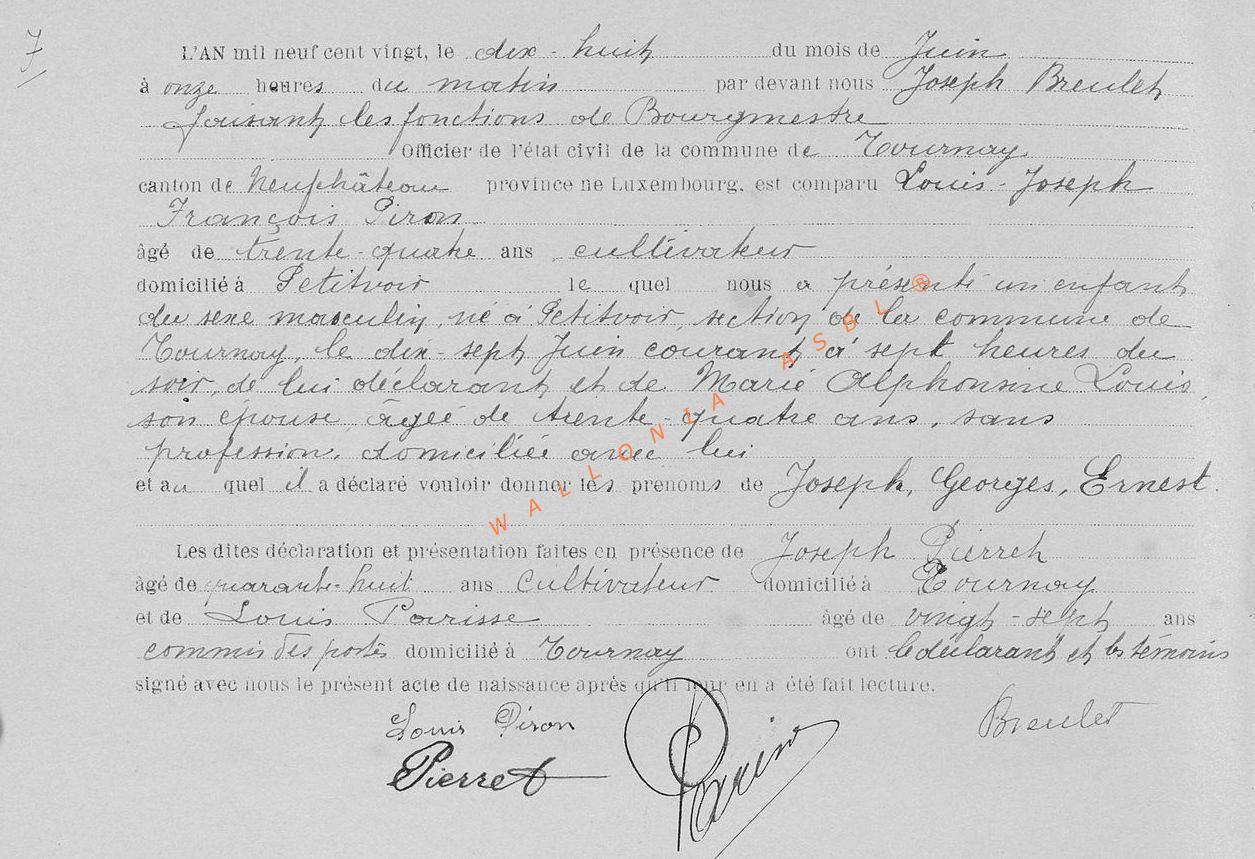 7
L'AN mil neuf cent vingt, le dix-huit du mois de Juin
à onze heures du matin par devant nous Joseph Breulet
faisant les fonctions de Bourgmestre
Officier de l'état civil de la commune de Tournay
canton de Neufchâteau province ne Luxembourg, est comparu Louis-Joseph
François Piron
âgé de trente-quatre ans, cultivateur
domicilié à Petitvoir le quel nous a présenté un enfant
du sexe masculin, né à Petitvoir, section de la commune de
Tournay, le dix-sept Juin courant à sept heures du
soir, de lui déclarant et de Marie Alphonsine Louis,
son épouse, âgée de trente-quatre ans, sans
profession, domiciliée avec lui
et au quel il a déclaré vouloir donner les prenoms de Joseph, Georges, Ernest.
Les dites déclaration et présentation faites en présence de Joseph Pierret
âgé de quarante-huit ans cultivateur domicilié à Tournay
et de Louis Parisse âgé de vingt-sept ans
commis des postes domicilié à Tournay ont le déclarant et les témoins
signé avec nous le présent acte de naissance après qu'il leur en a été fait lecture.
Louis Piron
Breulet
Pierret
WALLONIA ASBL ®